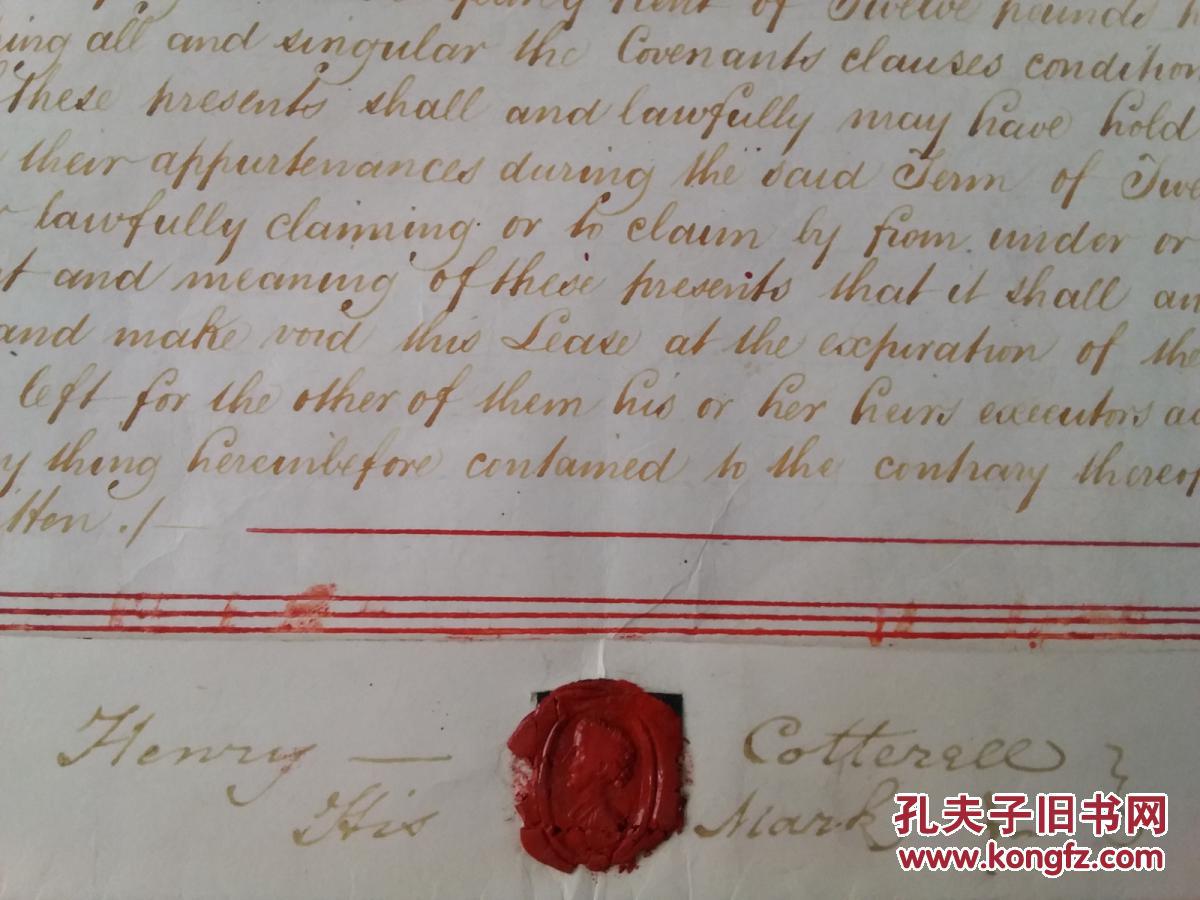 yearly rent of Twelve pounds
ing all and singular the Covenants clauses condition
These presents shall and lawfully may have hold
their appurtenances during the said Term of Twe
lawfully claiming or to claim by from under or
t and meaning of these presents that it shall an
and make void this Lease at the expiration of the
left for the other of them his or her heirs executors ad
y thing hereinbefore contained to the contrary thereof
itten ./—
Henry — Cotterell }
His Mark
孔夫子旧书网
www.kongfz.com